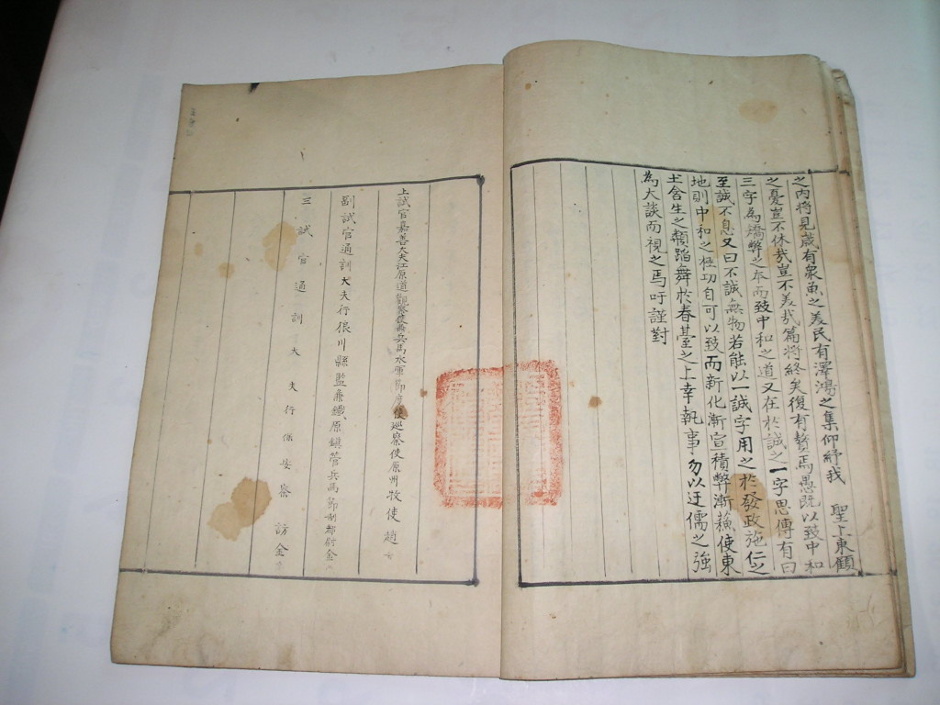 之內將見歲有衆魚之美民有澤鴻之集仰紓我 聖上東顧
之憂豈不休哉豈不美哉篇將終矣復有贅焉愚旣以致中和
三字為矯弊之本而致中和之道又在於誠之一字思傳有曰
至誠不息又曰不誠無物若能以一誠字用之於發政施仁之
地則中和之極功自可以致而新化漸宣積弊漸穌使東
土含生之類蹈舞於春臺之上幸執事勿以迂儒之強
為大談而視之焉吁謹對
上試官嘉善大夫江原道觀察使兼兵馬水軍節度使巡察使原州牧使趙
副試官通訓大夫行狼川縣監兼鐵原鎭管兵馬節制都尉金
三試官通訓大夫行保安察訪金